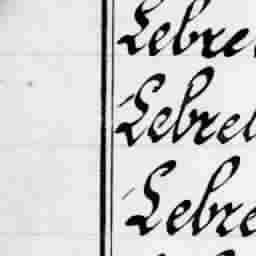 Lebret
Lebret
Lebre